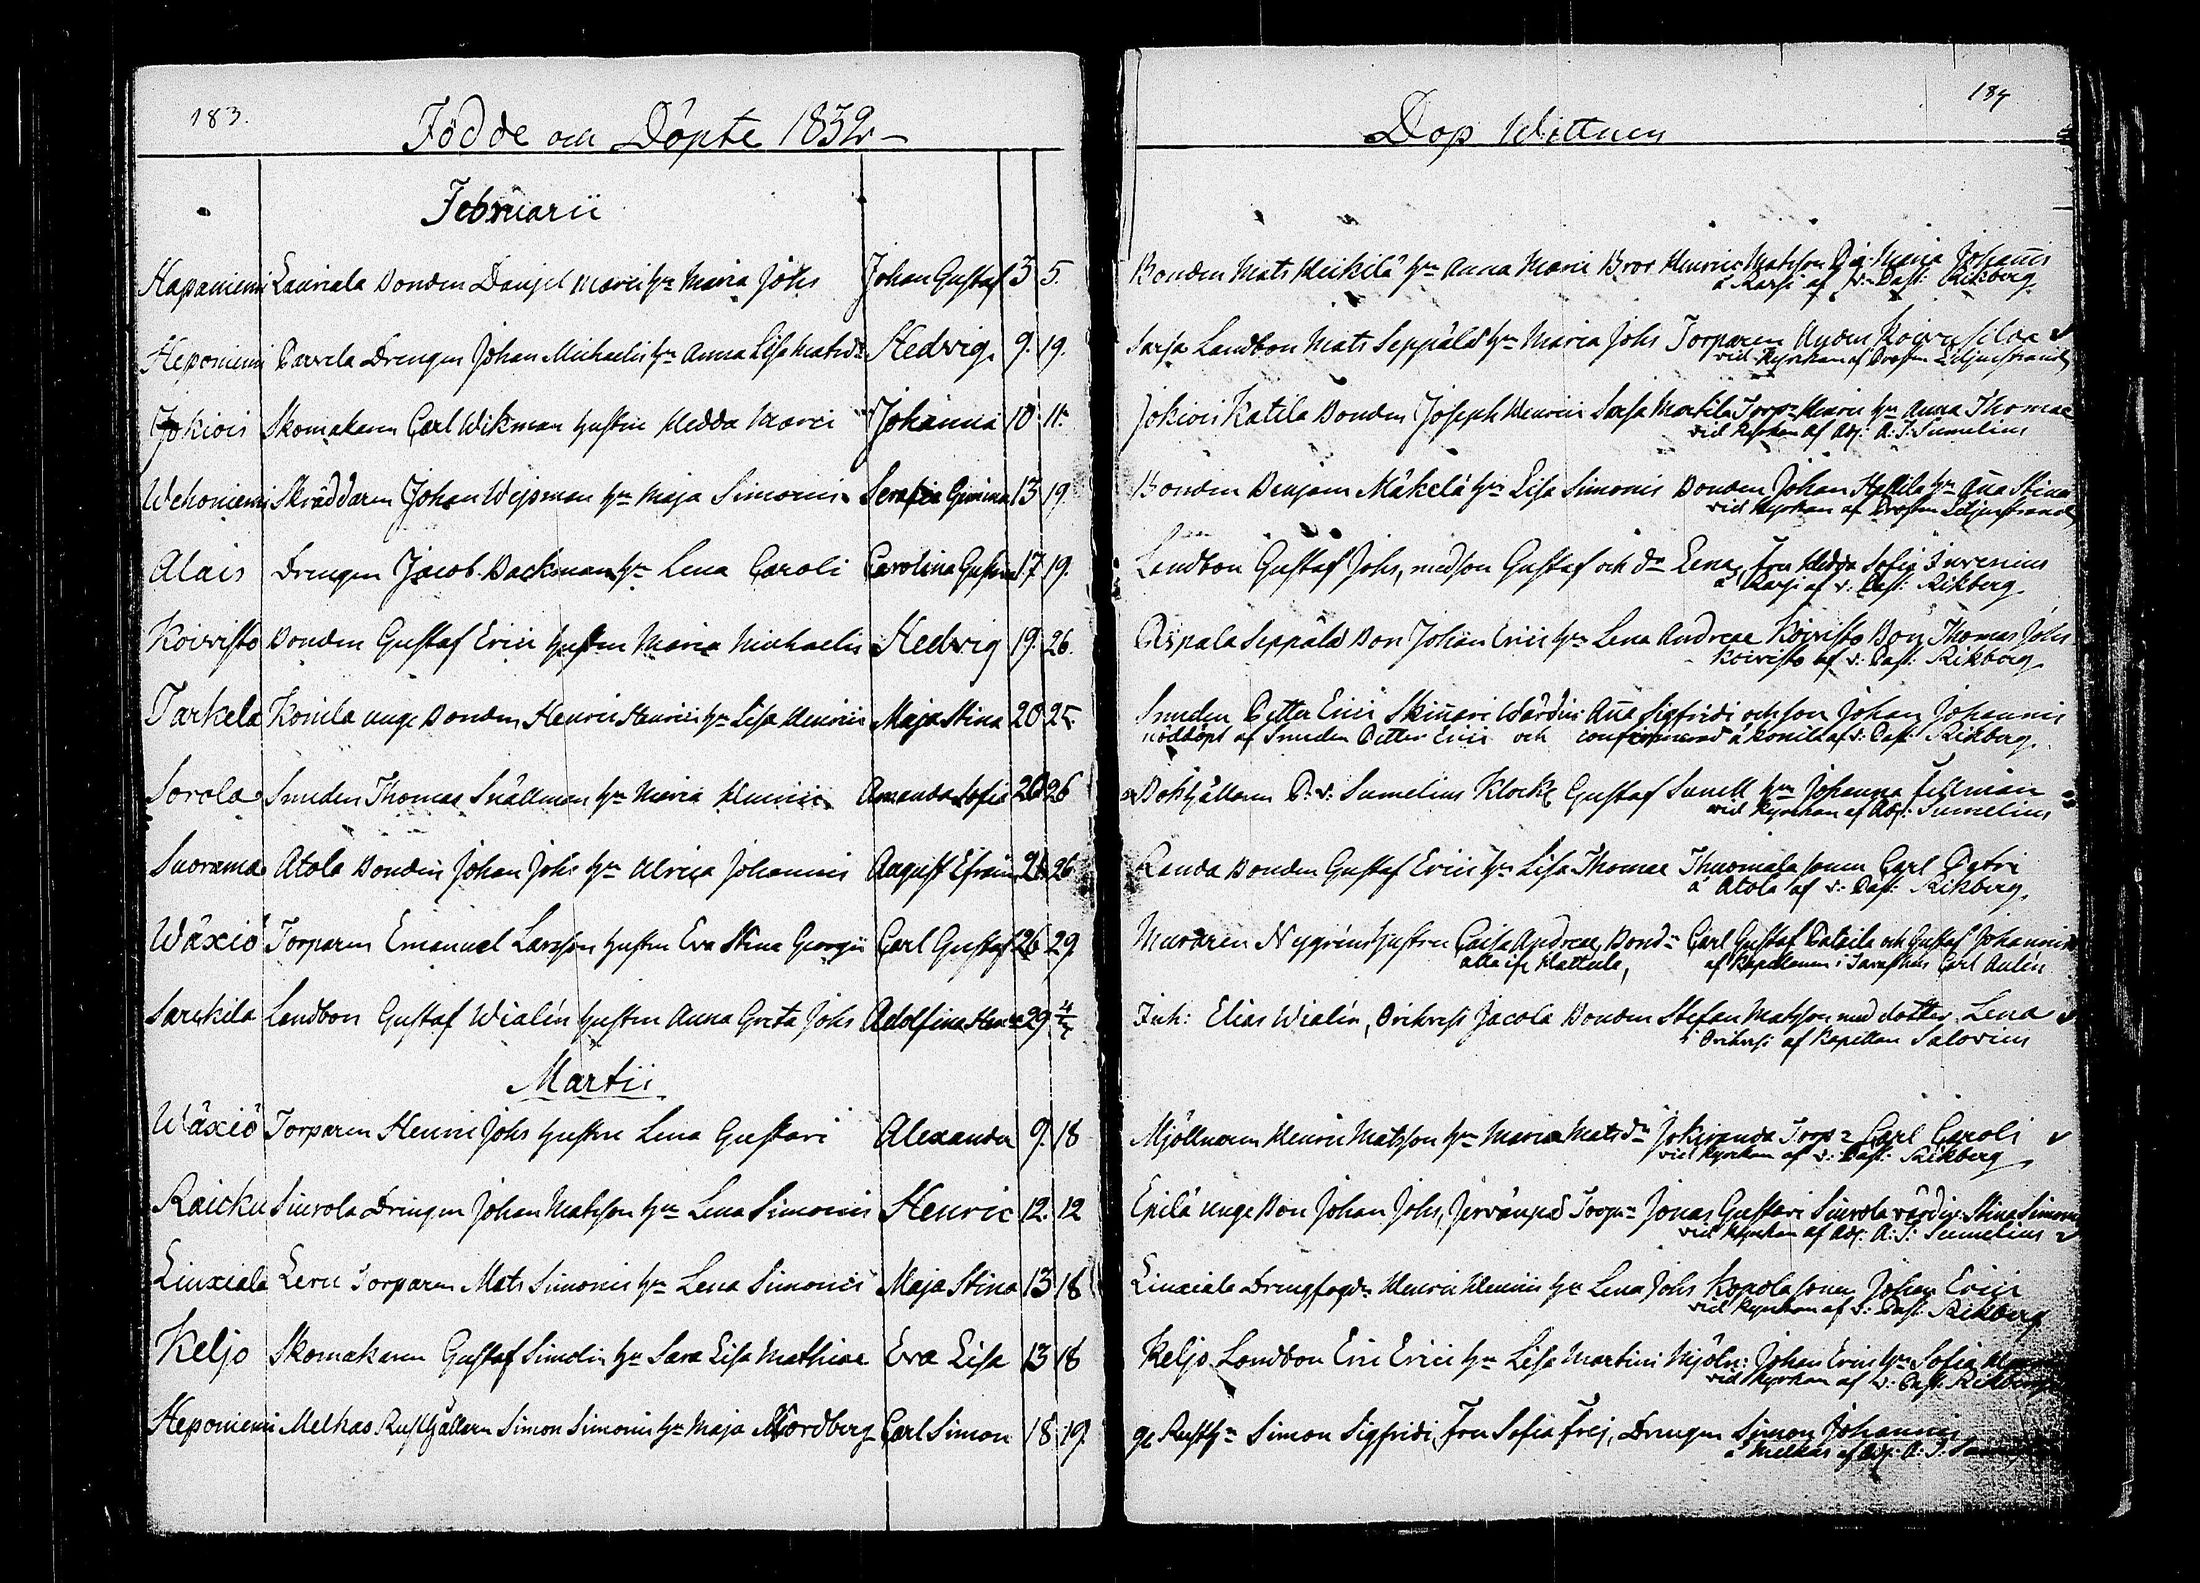 183.
Födde och Döpte 1832
Februarii
Hapaniemi Lauriala Bonden Danjel Marci hu Maria Johs Johan Gustaf 3 5.
Heponiemi Pavela Drengen Johan Michaelis hu Anna Lisa Matsdr Hedvig. 9. 19.
Jokiois Skomakaren Carl Wikman hustru Hedda Marci Johanna 10 11.
Wehoniemi Skräddaren Johan Wejsman hu Maja Simonis Serafia 13 19.
Alais Drengen Jacob Backman hu Lena Caroli Carolina Gustava 17. 19.
Koivisto Bonden Gustaf Erici hustru Maria Michaelis Hedvig 19. 26.
Tarkela Konila unge Bonden Henric Henrici hu Lisa Henrici Maja Stina 20 25
Sorola Smeden Thomas Snällman hu Maria Henrici Amanda Sofia 26 26
Suorama Atola Bonden Johan Johs hu Ulrica Johannis August Efraim 26 26
Wäxiö Torparen Emanuel Larsson hustru Eva Stina Georgii Carl Gustaf 26 29.
Sarckila Landbon Gustaf Wialén hustru Anna Greta Johs Adolfina 29
Martii
Wäxiö Torparen Henric Johs hustru Lena Gustavi Alexander 9. 18
Raicku Siurola Drengen Johan Matsson hu Lena Simonis Henric 12. 12
Liuxiala Leru Torparen Mats Simonis hu Lena Simonis Maja Stina 13 18
Keljo Skomakaren Gustaf Simolin hu Sara Lisa Mathiae Eva Lisa 13 18
Heponiemi Melkas Rusthållaren Simon Simonis hu Maja Nordberg Carl Simon 18. 19.
184
Dop Wittnen
Bonden Mats Heikilä hu Anna Marci Bror Henric Matsson Pig. Maria Johannis
å Karsi af v: Past: Rikberg.
Sarsa Landbon Mats Seppälä hu Maria Johs Torparen Koivusilda
vid Kyrkan af Prosten Liljenstrand
Jokiois Katila Bonden Joseph Henrici Sarsa Martila Torp. Henric hu Anna Thomae
vid Kyrkan af Adj: A: J: Sumelius
Bonden Benjam Mäkelä hu Lisa Simonis Bonden Johan Hu Aña Stina
vid Kyrkan af Prosten Liljenstrand
Landbon Gustaf Johs, med son Gustaf och dr Lena, Fru Hedda Sofia Juvenius
å Karsi af v: Past: Rikberg.
Äspala Seppälä Bon Johan Erici hu Lena Andreae Koivisto Bon Thomas Johs
Koivisto af v: Past: Rikberg.
Smeden Petter Erici Skinari Wärdin Aña Sigfridi och son Johan Johannis
nöddöpt af Smeden Petter Erici och confirmerad å Konila af v: Past: Rikberg.
Bokhållaren P. v. Sumelius Klock Gustaf Sunell hu Johanna Fellman
vid Kyrkan af Adj: Sumelius
Randa Bonden Gustaf Erici hu Lisa Thomae Thuomala sonen Carl Petri
å Atola af v: Past: Rikberg.
Muraren Nygrén hustru Caisa Andreae, Bond: Carl Gustaf och Gustaf Johannis
alla ifr Hattula, af Kapellanen i Tavasthus Carl Aulén
Inh: Elias Wialén, Orihvesi Jacola Bonden Stefan Matsson med dotter Lena
i Orihvesi af Kapellan Salovius
Mjöllnaren Henric Matsson hu Maria Matsdr Jokiranda Torp. Carl Caroli
vid Kyrkan af v: Past: Rikberg
Epilä unge Bon Johan Johs, Torpn Jonas Gustavi Siurola värdin Stina Simonis
vid Kyrkan af Adj: A: J: Sumelius
Liuxiala Drengfogden Henric Henrici hu Lena Johs Kopola sonen Johan Erici
vid Kyrkan af v: Past: Rikberg
Keljo Landbon Eric Erici hu Lisa Martini Mjöln: Johan Erici hu Sofia
vid Kyrkan af v: Past: Rikberg
gl Rusth. Simon Sigfridi, Fru Sofia Frej, Drengen Simon Johannis
å Melkas af Adj: A: J: